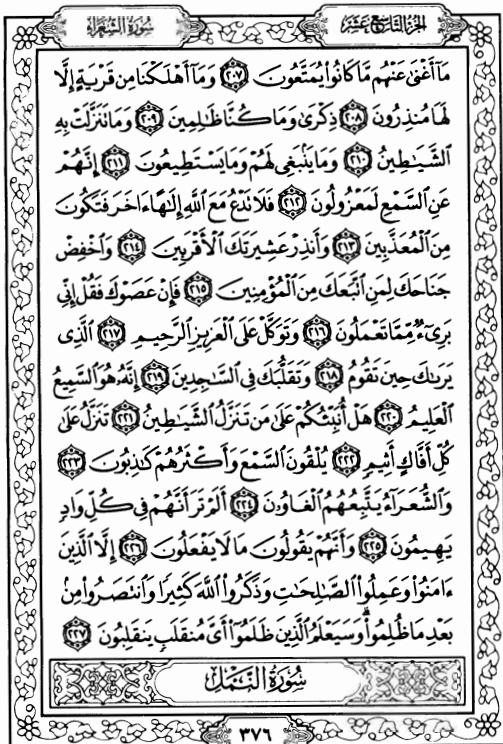 سُورَةُ الشُّعَرَاءِ
الجزء التاسع عشر
مَآ أَغْنَىٰ عَنْهُم مَّا كَانُوا۟ يُمَتَّعُونَ ٢٠٧ وَمَآ أَهْلَكْنَا مِن قَرْيَةٍ إِلَّا
لَهَا مُنذِرُونَ ٢٠٨ ذِكْرَىٰ وَمَا كُنَّا ظَٰلِمِينَ ٢٠٩ وَمَا تَنَزَّلَتْ بِهِ
ٱلشَّيَٰطِينُ ٢١٠ وَمَا يَنۢبَغِى لَهُمْ وَمَا يَسْتَطِيعُونَ ٢١١ إِنَّهُمْ
عَنِ ٱلسَّمْعِ لَمَعْزُولُونَ ٢١٢ فَلَا تَدْعُ مَعَ ٱللَّهِ إِلَٰهًا ءَاخَرَ فَتَكُونَ
مِنَ ٱلْمُعَذَّبِينَ ٢١٣ وَأَنذِرْ عَشِيرَتَكَ ٱلْأَقْرَبِينَ ٢١٤ وَٱخْفِضْ
جَنَاحَكَ لِمَنِ ٱتَّبَعَكَ مِنَ ٱلْمُؤْمِنِينَ ٢١٥ فَإِنْ عَصَوْكَ فَقُلْ إِنِّى
بَرِىٓءٌ مِّمَّا تَعْمَلُونَ ٢١٦ وَتَوَكَّلْ عَلَى ٱلْعَزِيزِ ٱلرَّحِيمِ ٢١٧ ٱلَّذِى
يَرَىٰكَ حِينَ تَقُومُ ٢١٨ وَتَقَلُّبَكَ فِى ٱلسَّٰجِدِينَ ٢١٩ إِنَّهُۥ هُوَ ٱلسَّمِيعُ
ٱلْعَلِيمُ ٢٢٠ هَلْ أُنَبِّئُكُمْ عَلَىٰ مَن تَنَزَّلُ ٱلشَّيَٰطِينُ ٢٢١ تَنَزَّلُ عَلَىٰ
كُلِّ أَفَّاكٍ أَثِيمٍ ٢٢٢ يُلْقُونَ ٱلسَّمْعَ وَأَكْثَرُهُمْ كَٰذِبُونَ ٢٢٣
وَٱلشُّعَرَآءُ يَتَّبِعُهُمُ ٱلْغَاوُۥنَ ٢٢٤ أَلَمْ تَرَ أَنَّهُمْ فِى كُلِّ وَادٍ
يَهِيمُونَ ٢٢٥ وَأَنَّهُمْ يَقُولُونَ مَا لَا يَفْعَلُونَ ٢٢٦ إِلَّا ٱلَّذِينَ
ءَامَنُوا۟ وَعَمِلُوا۟ ٱلصَّٰلِحَٰتِ وَذَكَرُوا۟ ٱللَّهَ كَثِيرًا وَٱنتَصَرُوا۟ مِنۢ
بَعْدِ مَا ظُلِمُوا۟ۗ وَسَيَعْلَمُ ٱلَّذِينَ ظَلَمُوٓا۟ أَىَّ مُنقَلَبٍ يَنقَلِبُونَ ٢٢٧
سُورَةُ النَّمْلِ
٣٧٦